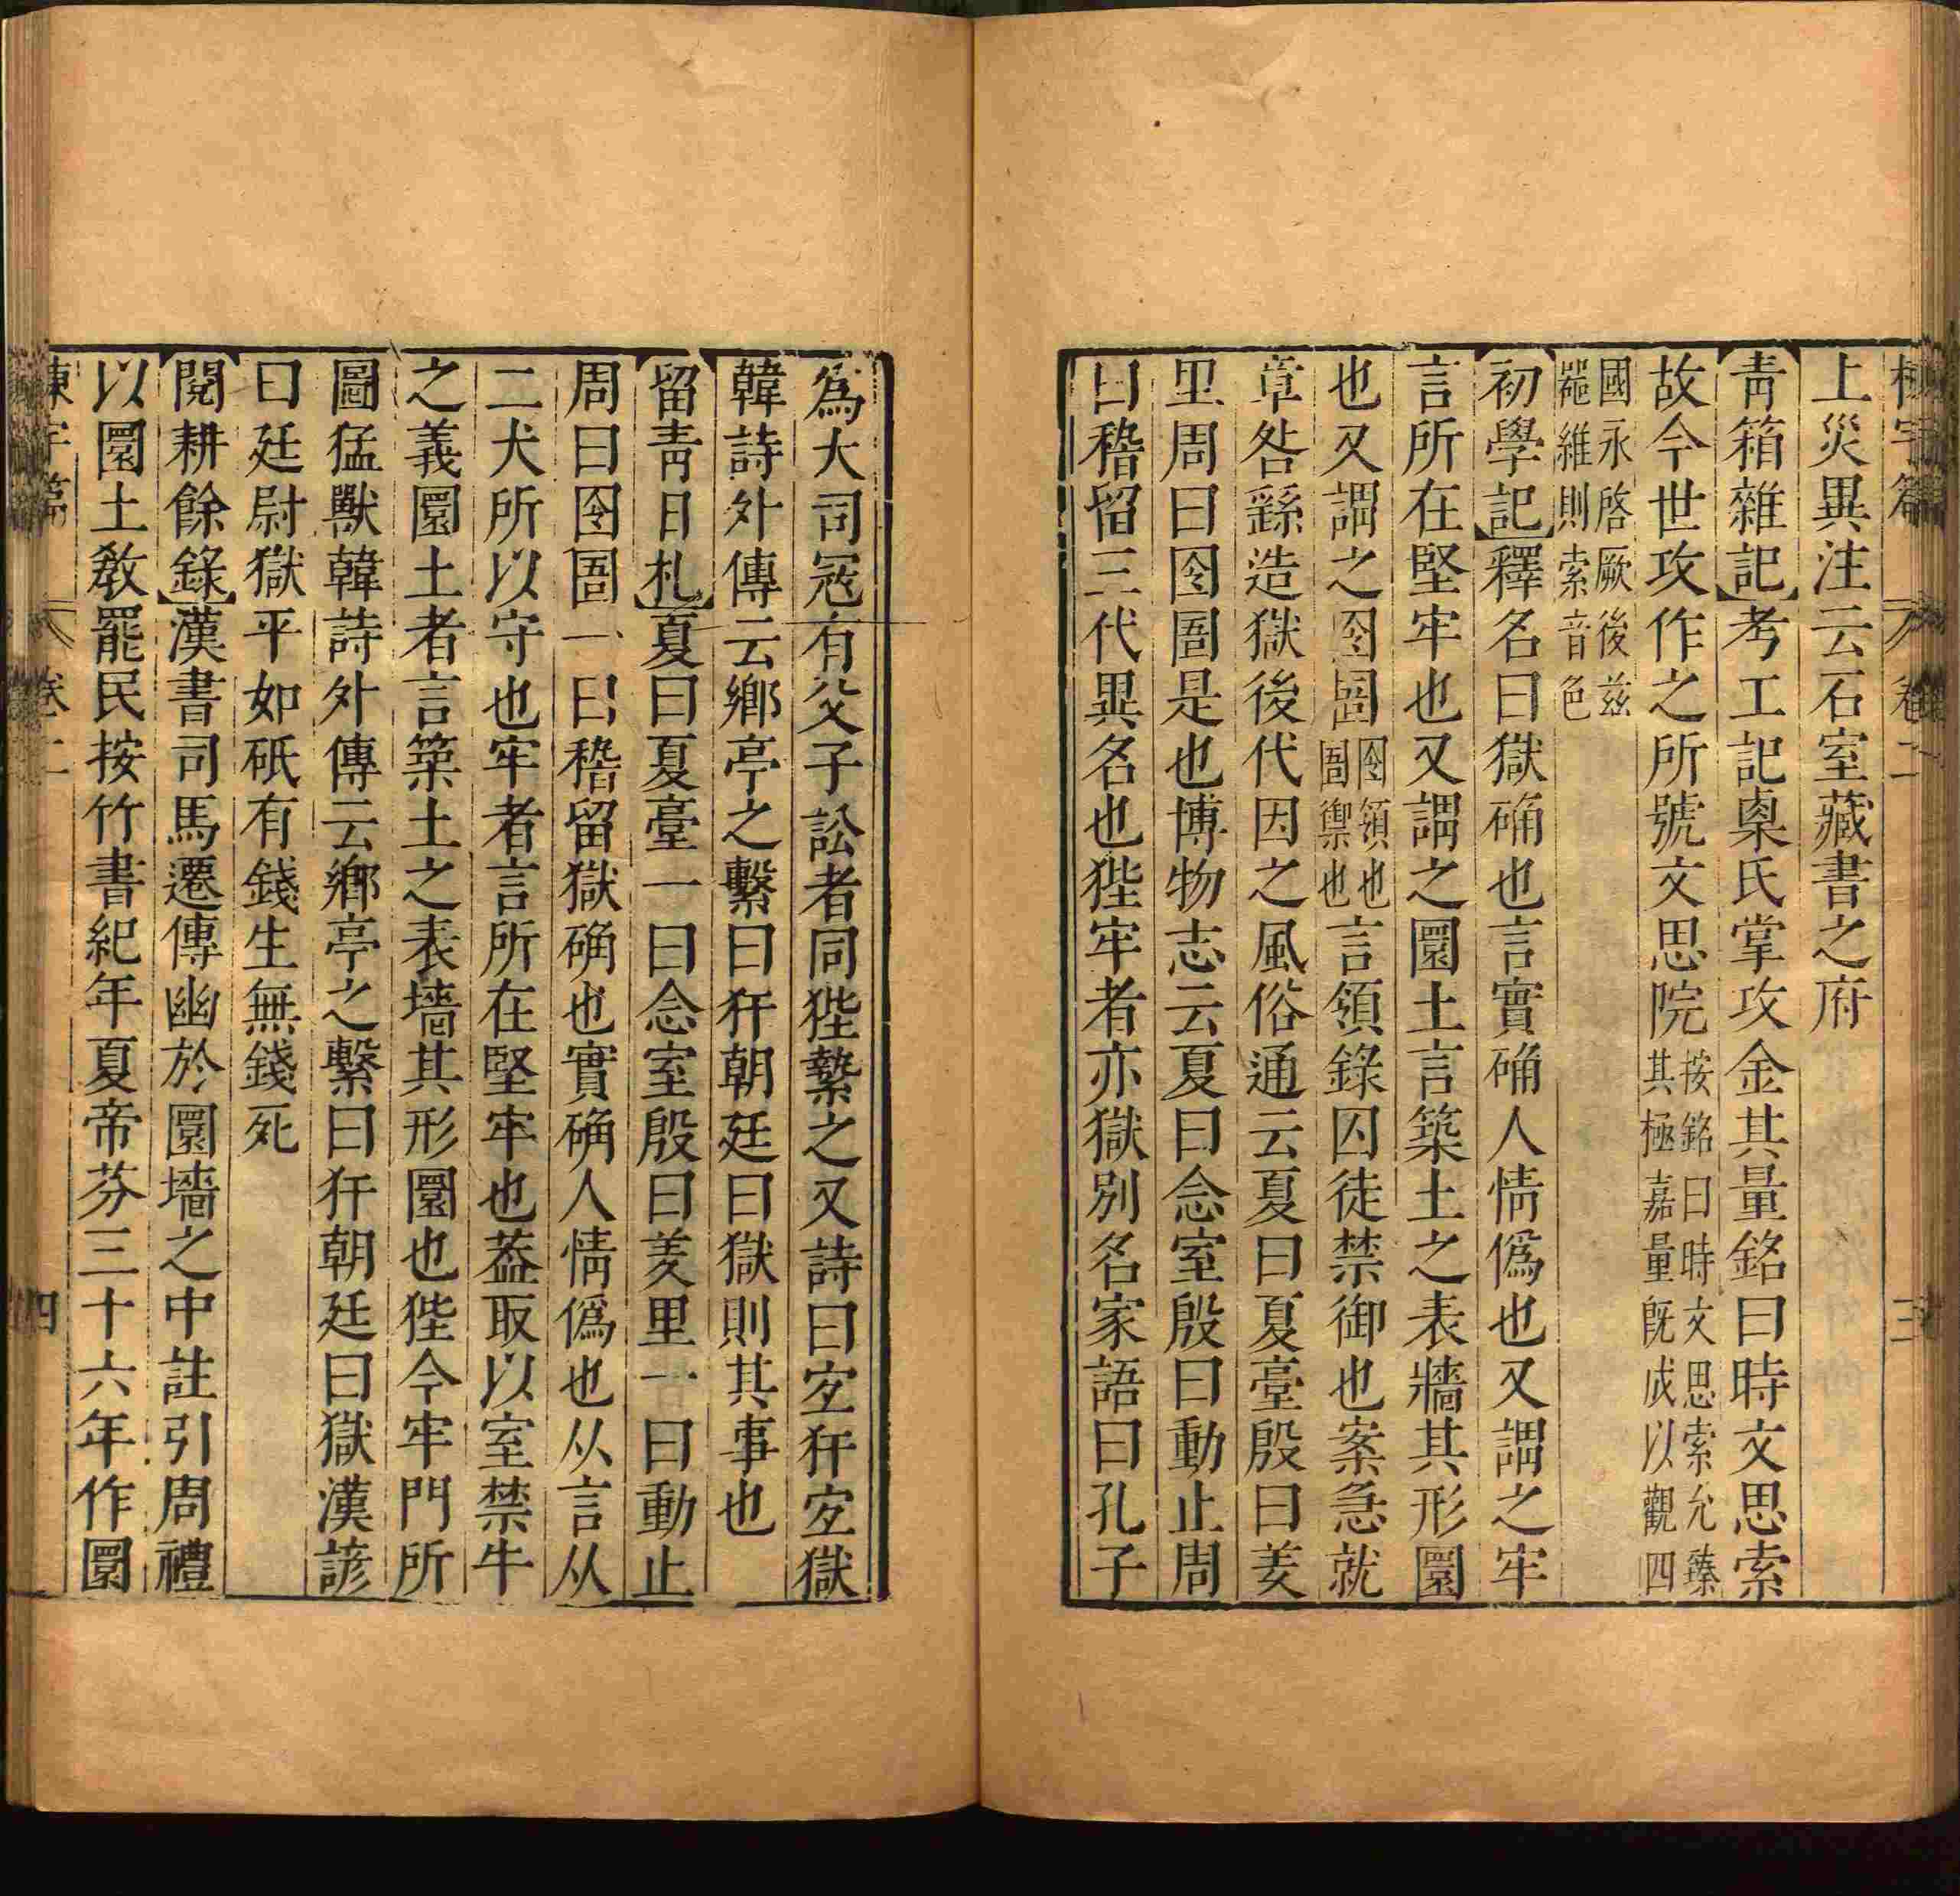 卷二 三
上災異注云石室藏書之府
【靑箱雜記】考工記㮚氏掌攻金其量銘曰時文思索
故今世攻作之所號文思院按銘曰時文思索允臻其極嘉量旣成以觀四
國永啓厥後兹噐維則索音色
【初學記】釋名曰獄确也言實确人情僞也又謂之牢
言所在堅牢也又謂之圜土言築土之表牆其形圜
也又謂之囹圄囹領也圄禦也言領錄囚徒禁御也案急就
章咎繇造獄後代因之風俗通云夏曰夏臺殷曰羑
里周曰囹圄是也博物志云夏曰念室殷曰動止周
曰稽留三代異名也狴牢者亦獄別名家語曰孔子
爲大司冦有父子訟者同狴縶之又詩曰宜犴宜獄
韓詩外傳云鄉亭之繫曰犴朝廷曰獄則其事也
【留靑日札】夏曰夏臺一曰念室殷曰羑里一曰動止
周曰囹圄一曰稽留獄确也實确人情僞也从言从
二犬所以守也牢者言所在堅牢也葢取以室禁牛
之義圜土者言築土之表墻其形圜也狴今牢門所
圖猛獸韓詩外傳云鄉亭之繫曰犴朝廷曰獄漢諺
曰廷尉獄平如砥有錢生無錢死
【閱耕餘錄】漢書司馬遷傳幽於圜墻之中註引周禮
以圜土敎罷民按竹書紀年夏帝芬三十六年作圜
卷二 四